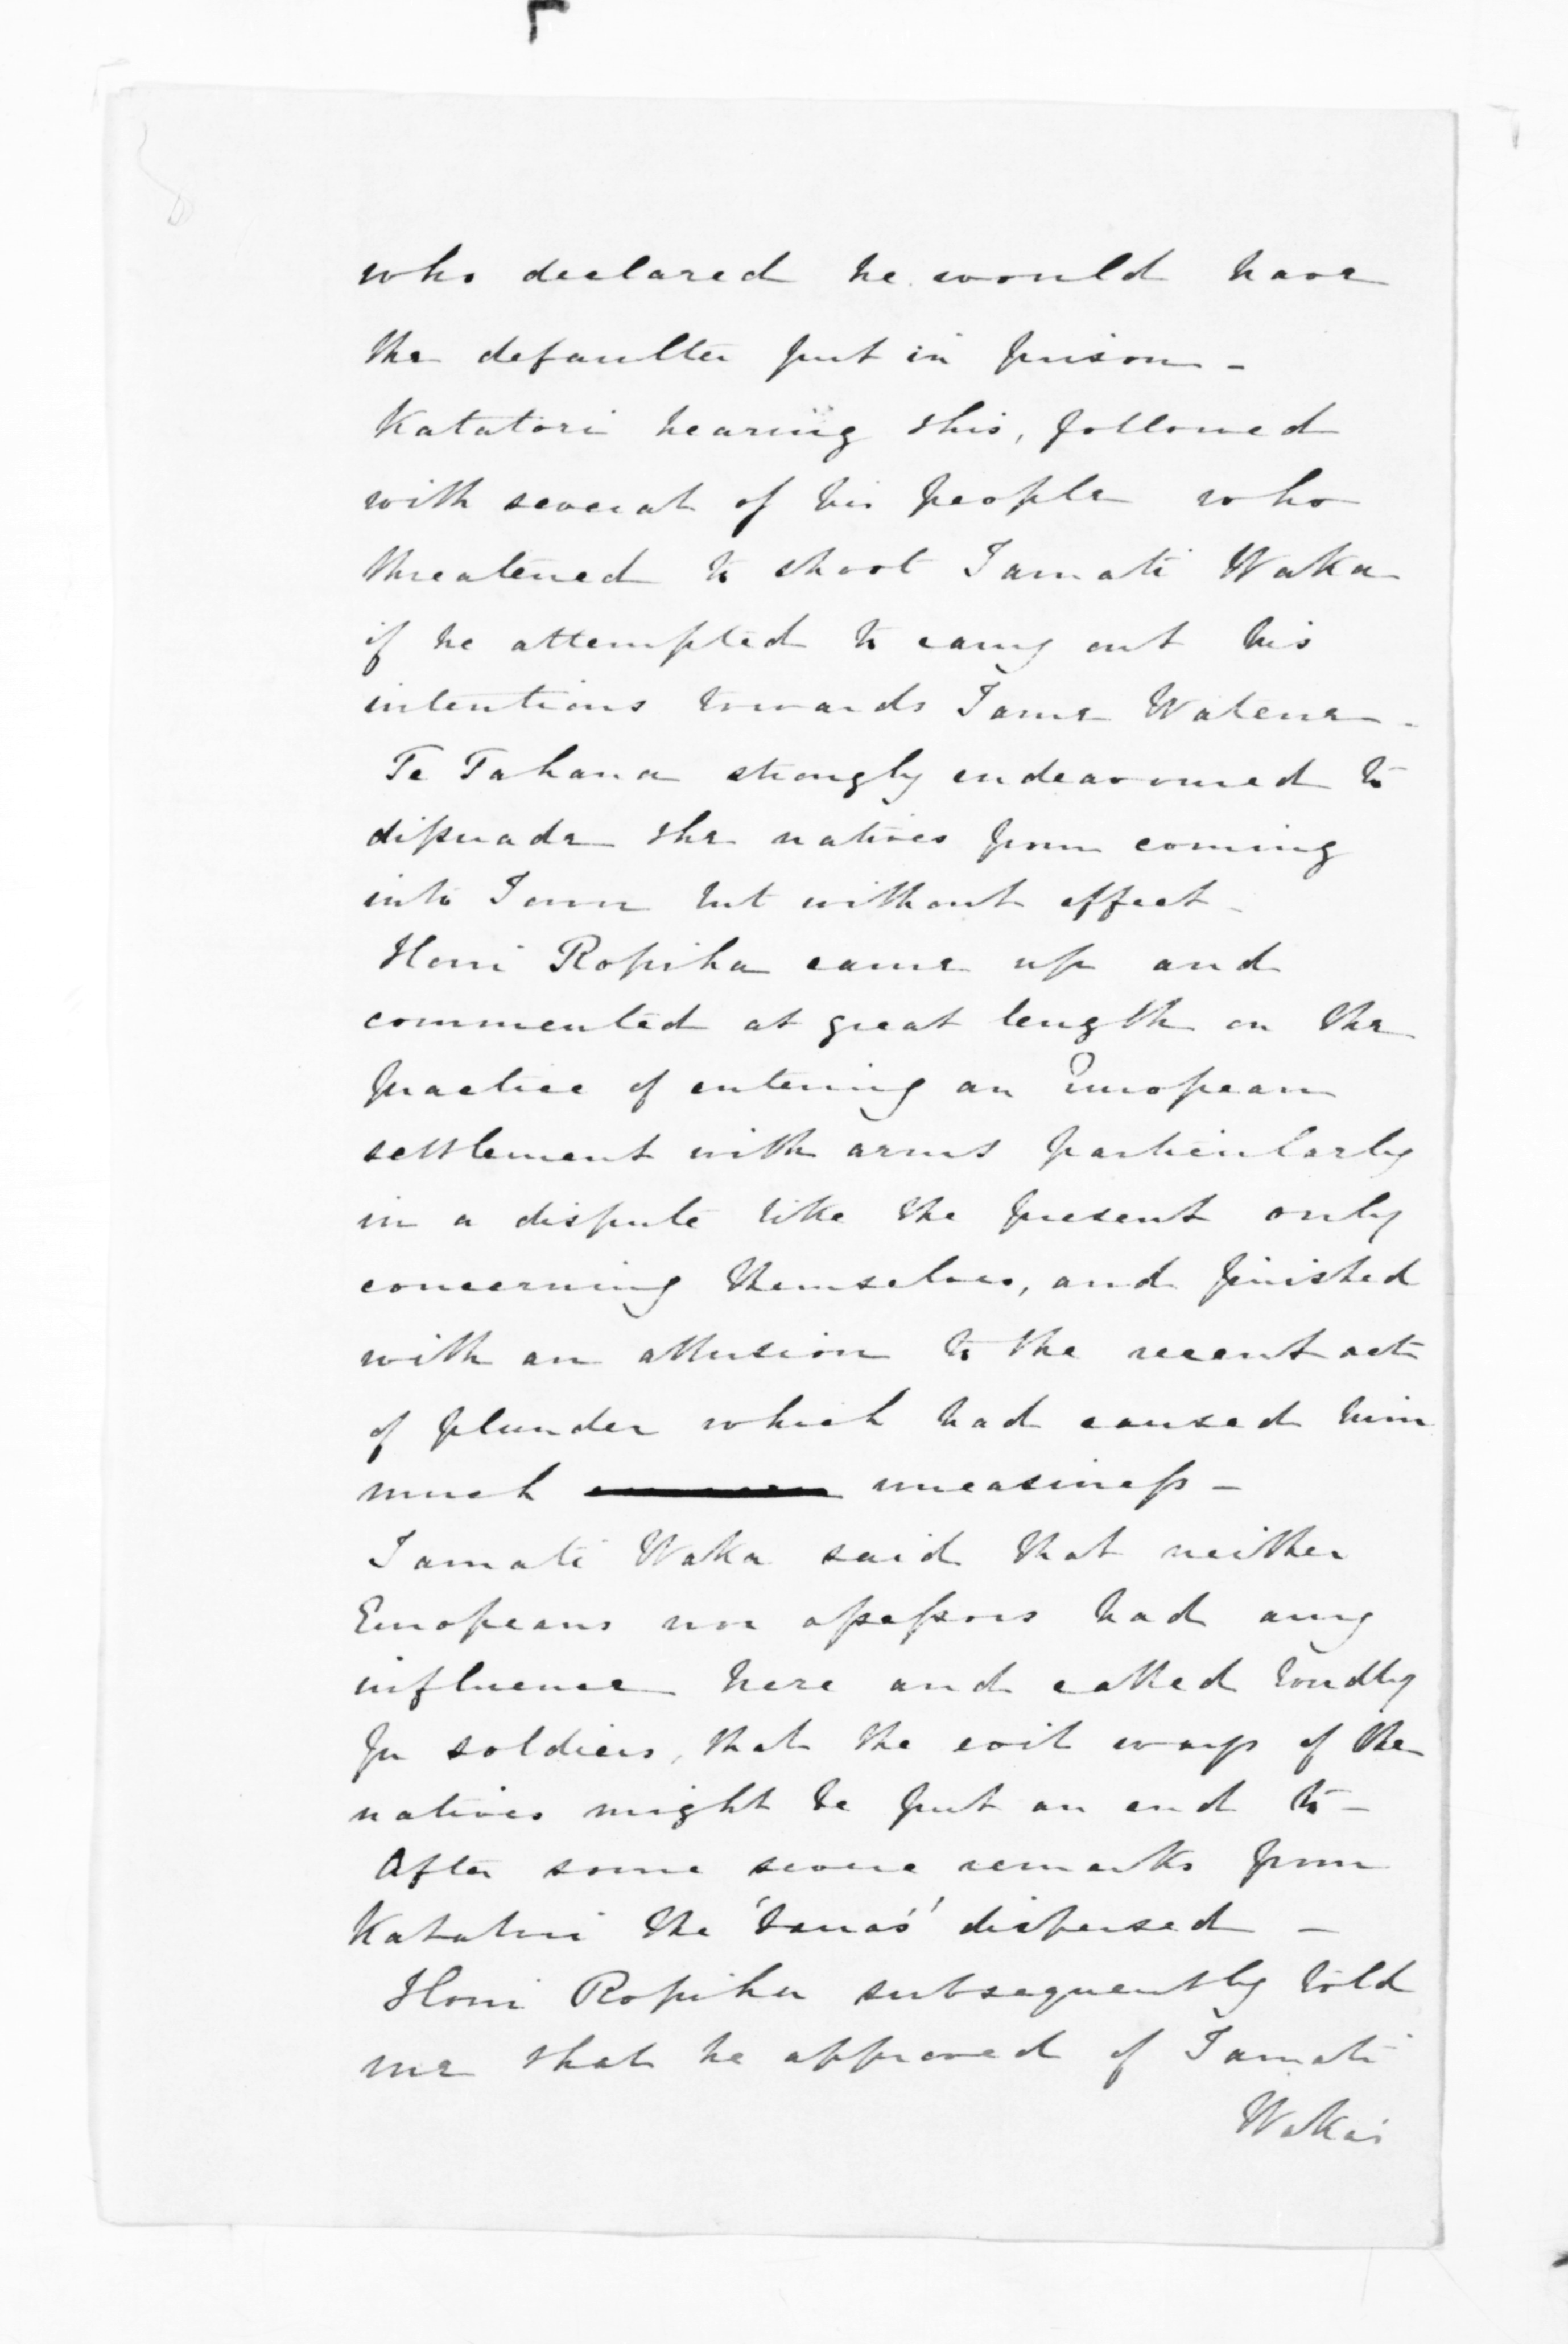 who declared he would have
the defaulter put in prison -
Katatori hearing this, followed
with several of his people who
threatened to shoot Tamati Waka
if he attempted to carry out his
intentions towards Tame Watene -
Te Tahana strongly endeavoured to
dissuade the natives from coming
into Town but without effect -
Honi Ropiha came up and
commented at great length on the
practice of entering an European
settlement with arms particularly
in a dispute like the present only
concerning themselves, and finished
with an allusion to the recent act
of plunder which had caused him
much uneasiness -
Tamati Waka said that neither
Europeans nor assessors had any
influence here and called loudly
for soldiers, that the evil ways of the
natives might be put an end to -
After some severe remarks from
Katatori the 'tauas' dispersed -
Honi Ropiha subsequently told
me that he approved of Tamati
Waka's